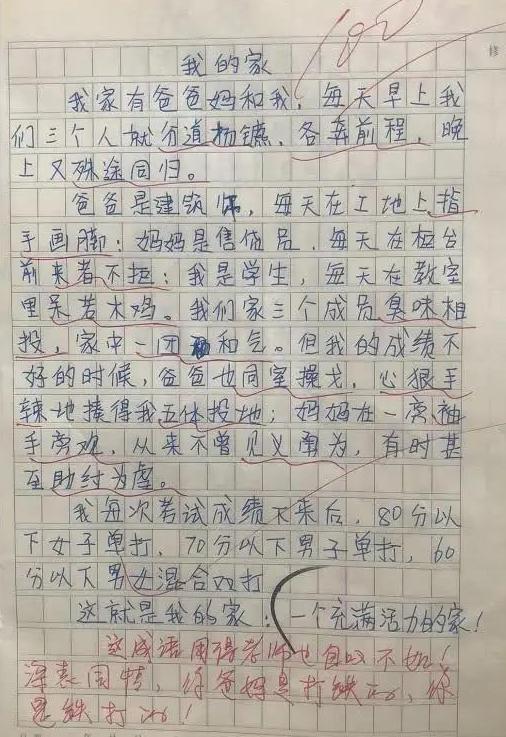 100
修
我的家
我家有爸爸妈和我，每天早上我
们三个人就分道扬镳，各奔前程，晚
上又殊途同归。
爸爸是建筑师，每天在工地上指
手画脚；妈妈是售货员，每天在柜台
前来者不拒；我是学生，每天在教室
里呆若木鸡。我们家三个成员臭味相
投，家中一团和气。但我的成绩不
好的时候，爸爸也同室操戈，心狠手
辣地揍得我五体投地；妈妈在一旁袖
手旁观，从来不曾见义勇为，有时甚
至助纣为虐。
我每次考试成绩下来后，80分以
下女子单打，70分以下男子单打，60
分以下男女混合双打
这就是我的家：一个充满活力的家！
这成语用得老师也自叹不如！
深表同情，你爸妈是打铁的，你
是铁打的！